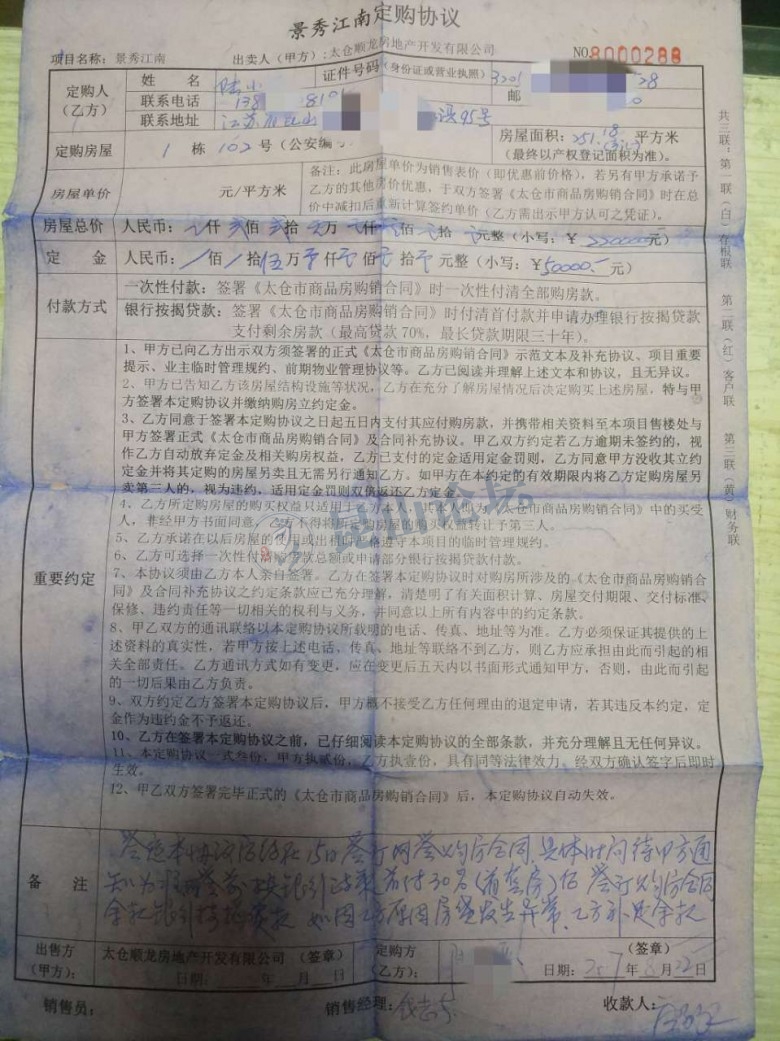 景秀江南定购协议
项目名称：景秀江南 出卖人（甲方）：太仓顺龙房地产开发有限公司 NO.8000288
定购人（乙方）
姓 名 陆小 证件号码（身份证或营业执照）3201 28
联系电话 138 810 邮
联系地址 江苏省昆山 95号
定购房屋 1 栋 102 号（公安编 房屋面积：251.18 平方米
（最终以产权登记面积为准）。
房屋单价 元/平方米
备注：此房屋单价为销售表价（即优惠前价格），若另有甲方承诺予
乙方的其他房价优惠，于双方签署《太仓市商品房购销合同》时在总
价中减扣后重新计算签约单价（乙方需出示甲方认可之凭证）。
房屋总价 人民币： 仟 贰佰 贰拾 万 仟 佰 拾 元整（小写：￥2200000元）
定 金 人民币：/佰/拾伍万零仟零佰零拾零元整（小写：￥50000.-元）
付款方式
一次性付款：签署《太仓市商品房购销合同》时一次性付清全部购房款。
银行按揭贷款：签署《太仓市商品房购销合同》时付清首付款并申请办理银行按揭贷款
支付剩余房款（最高贷款70%，最长贷款期限三十年）。
重要约定
1、甲方已向乙方出示双方须签署的正式《太仓市商品房购销合同》示范文本及补充协议、项目重要
提示、业主临时管理规约、前期物业管理协议等。乙方已阅读并理解上述文本和协议，且无异议。
2、甲方已告知乙方该房屋结构设施等状况，乙方在充分了解房屋情况后决定购买上述房屋，特与甲
方签署本定购协议并缴纳购房立约定金。
3、乙方同意于签署本定购协议之日起五日内支付其应付购房款，并携带相关资料至本项目售楼处与
甲方签署正式《太仓市商品房购销合同》及合同补充协议。甲乙双方约定若乙方逾期未签约的，视
作乙方自动放弃定金及相关购房权益，乙方已支付的定金适用定金罚则，乙方同意甲方没收其立约
定金并将其定购的房屋另卖且无需另行通知乙方。如甲方在本约定的有效期限内将乙方定购房屋另
卖第三人的，视为违约，适用定金罚则双倍返还乙方定金。
4、乙方所定购房屋的购买权益只适用于乙方本人，其本人即为《太仓市商品房购销合同》中的买受
人，非经甲方书面同意，乙方不得将所定购房屋的购买权益转让予第三人。
5、乙方承诺在以后房屋的使用或出租时严格遵守本项目的临时管理规约。
6、乙方可选择一次性付清购房款总额或申请部分银行按揭贷款付款。
7、本协议须由乙方本人亲自签署。乙方在签署本定购协议时对购房所涉及的《太仓市商品房购销合
同》及合同补充协议之约定条款应已充分理解，清楚明了有关面积计算、房屋交付期限、交付标准、
保修、违约责任等一切相关的权利与义务，并同意以上所有内容中的约定条款。
8、甲乙双方的通讯联络以本定购协议所载明的电话、传真、地址等为准。乙方必须保证其提供的上
述资料的真实性，若甲方按上述电话，传真、地址等联络不到乙方，则乙方应承担由此而引起的相
关全部责任。乙方通讯方式如有变更，应在变更后五天内以书面形式通知甲方，否则，由此而引起
的一切后果由乙方负责。
9、双方约定乙方签署本定购协议后，甲方概不接受乙方任何理由的退定申请，若其违反本约定，定
金作为违约金不予返还。
10、乙方在签署本定购协议之前，已仔细阅读本定购协议的全部条款，并充分理解且无任何异议。
11、本定购协议一式叁份，甲方执贰份，乙方执壹份，具有同等法律效力。经双方确认签字后即时
生效。
12、甲乙双方签署完毕正式的《太仓市商品房购销合同》后，本定购协议自动失效。
备 注
签定本协议后 15日签订网签购房合同，具体时间待甲方通
知为准 网签前 银行 首付30% 签订购房合同
余款银行按揭贷款 如因乙方原因房贷发生异常，乙方补足余款
出售方（甲方）： 太仓顺龙房地产开发有限公司 （签章） 日期： 年 月 日
定购方（乙方）： （签章） 日期： 年 月22日
销售员： 销售经理： 收款人：
共三联：第一联（白）存根联 第二联（红）客户联 第三联（黄）财务联
昆山论坛